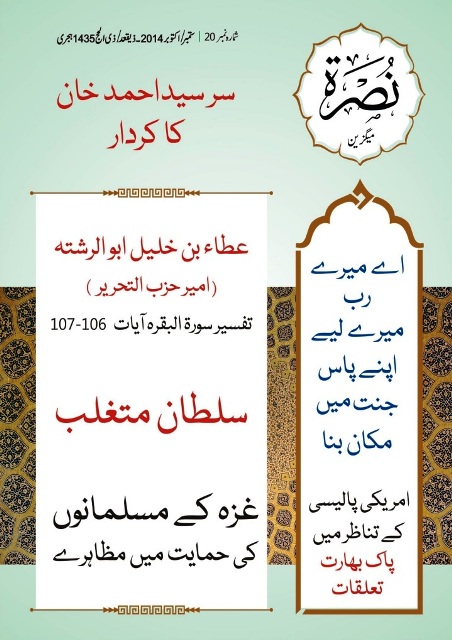 شمارہ نمبر 20 | ستمبر/اکتوبر 2014۔ ذیقعد/ذی الحج 1435 ہجری
نُصْرَة
میگزین
سر سید احمد خان
کا کردار
عطاء بن خلیل ابو الرشتہ
(امیر حزب التحریر)
تفسیر سورۃ البقرہ آیات 106-107
سلطان متغلب
غزہ کے مسلمانوں
کی حمایت میں مظاہرے
اے میرے
رب
میرے لیے
اپنے پاس
جنت میں
مکان بنا
امریکی پالیسی
کے تناظر میں
پاک بھارت
تعلقات